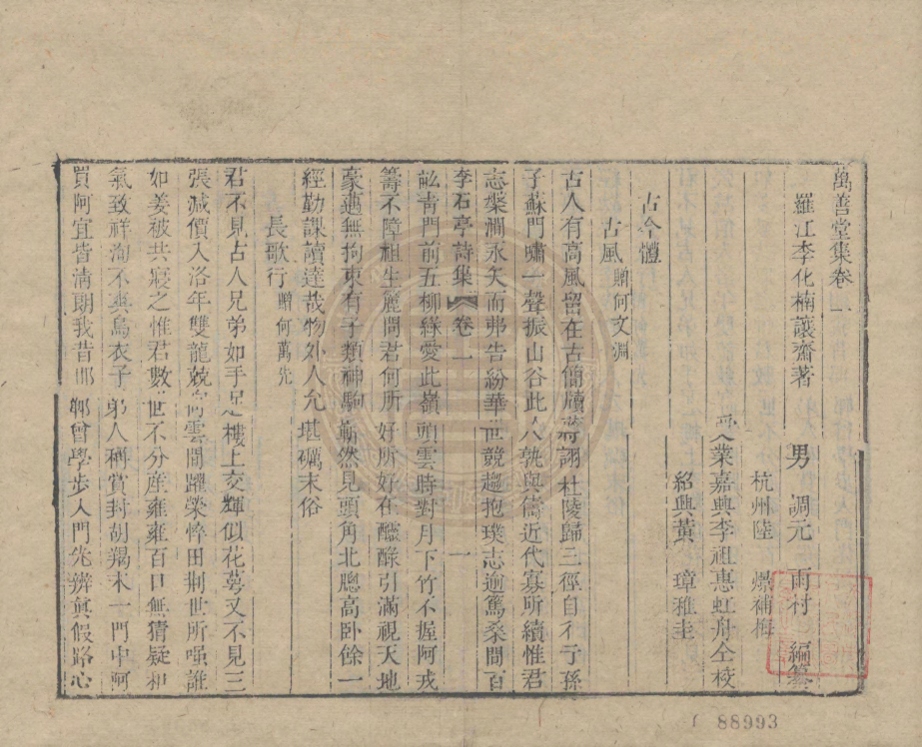 萬善堂集卷一
羅江李化楠讓齋著 男 調元 雨村 編纂
杭州陸 爆補梅
受業嘉興李祖惠虹舟仝校
紹興黃 璋稚圭
古今體
古風贈何文淵
古人有高風留在古簡牘蔣詡杜陵歸三徑自行于孫
子蘇門嘯一聲振山谷此人孰與儔近代寡所續惟君
志槃澗永矢而弗告紛華世競趨抱璞志逾篤桑間百
李石亭詩集 卷一 一
畝靑門前五柳綠愛此嶺頭雲時對月下竹不握阿戎
籌不障祖生簏問君何所好所好在醽醁引滿視天地
豪邁無拘束有子類神駒嶄然見頭角北牕高卧餘一
經勤課讀達哉物外人允堪礪末俗
長歌行贈何萬先
君不見古人兄弟如手足樓上交輝似花萼又不見三
張減價入洛年雙龍競向雲間躍榮悴田荆世所嗤誰
如姜被共寢之惟君數世不分産雍雍百口無猜疑和
氣致祥洵不爽烏衣子弟人稱賞封胡羯末一門中阿
買阿宜皆淸朗我昔邯鄲曾學步入門先辨眞假路心
88993